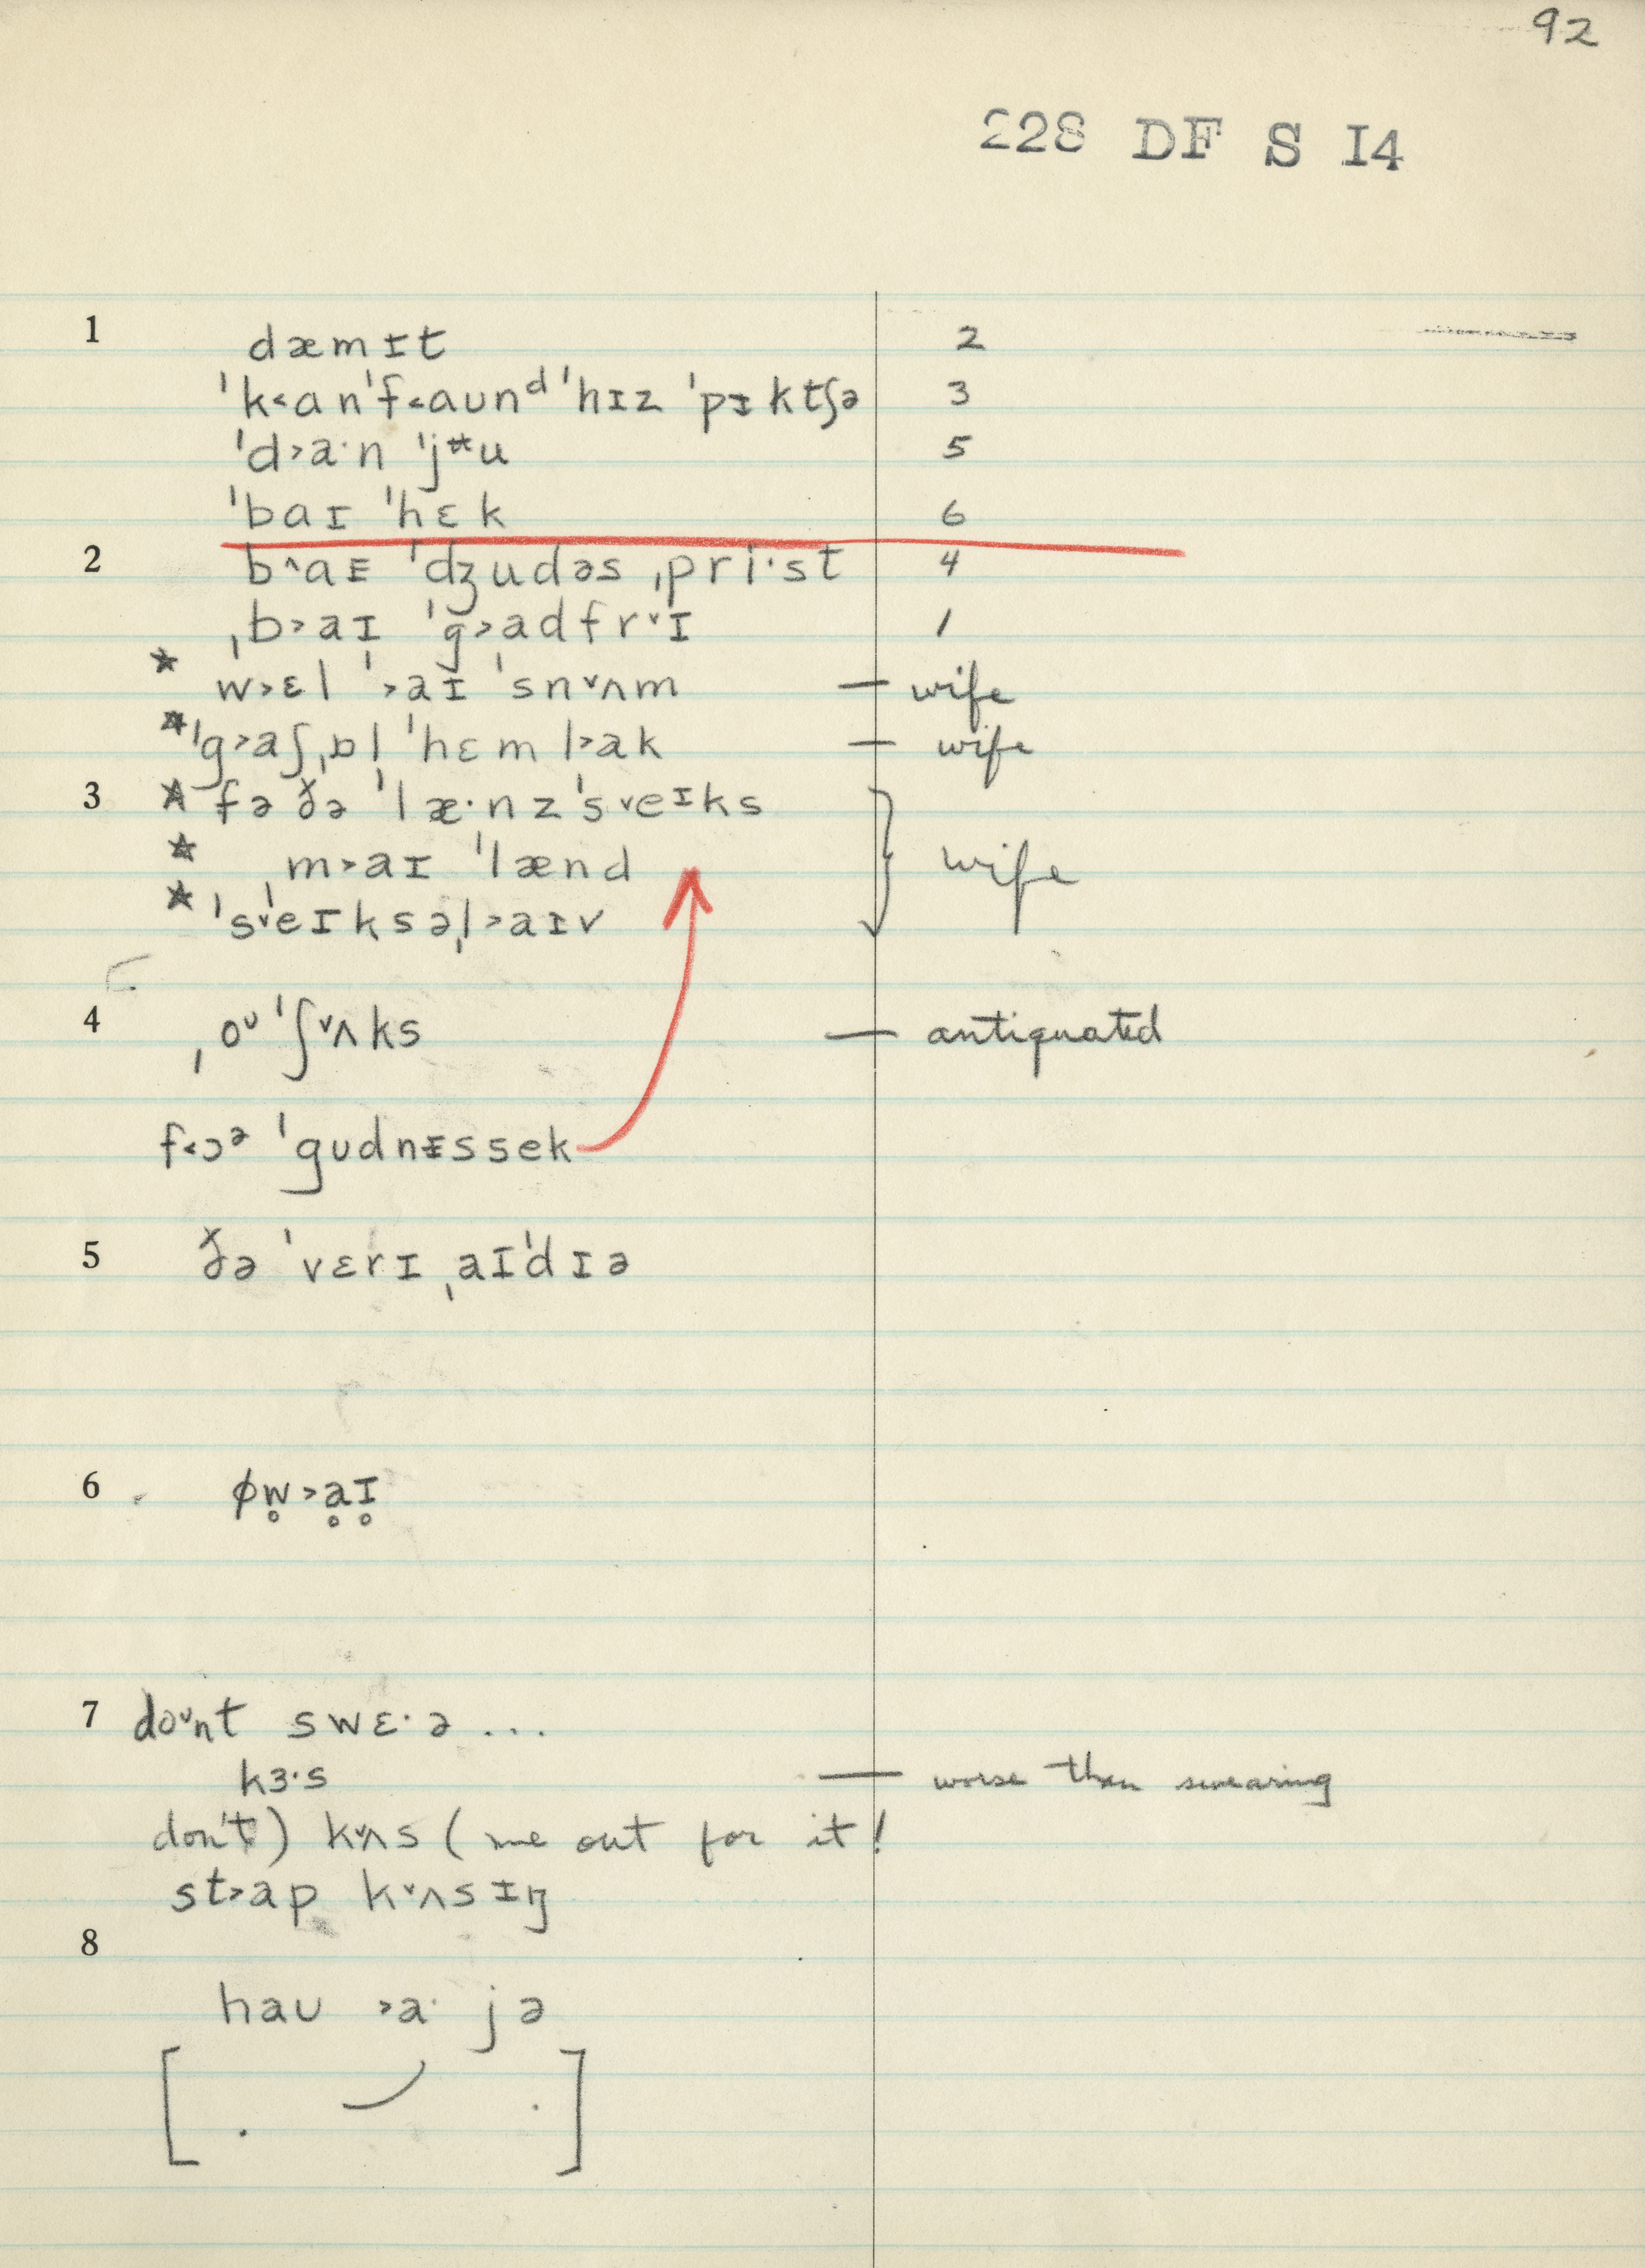 92
228 DF S I4
1 dæmɪt 2
ˈk˂anˈf˂aunᵈ ˈhɪz ˈpɪktʃə 3
ˈd˃a·n ˈjʉu 5
ˈbaɪ ˈhɛk 6
2 b^aɪ ˈdʒudəs ˌpri·st 4
ˌb˃aɪ ˈg˃adfrˇɪ 1
* w˃ɛl ˈ˃aɪ ˈsnˇʌm — wife
* ˈg˃aʃˌbl ˈhɛml˃ak — wife
3 * fə ðə ˈlæ·nzˈsˇeɪks
* ˌm˃aɪ ˈlænd wife
* ˈsˇeɪksəˌl˃aɪv
4 ˌoᶷ ˈʃˇʌks — antiquated
f˂ɔᵊ ˈgudnɪssek
5 ðə ˈvɛrɪ ˌaɪˈdɪə
6 ɸw̥˃ḁɪ̥
7 doˇnt swɛ·ə ...
kɜ·s — worse than swearing
don't) kˇʌs (me out for it!
st˃ap kˇʌsɪŋ
8
hau ˃a· jə
[ . . ]